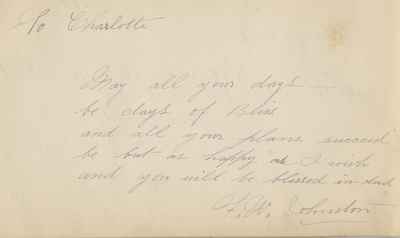 To Charlotte
May all your days
be days of Bliss
and all your plans succeed
be but as happy as I wish
and you will be blessed indeed
F. W. Johnston